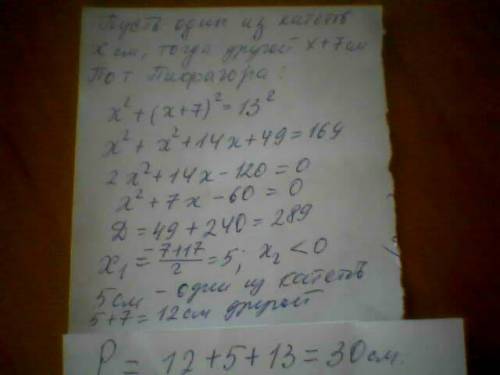 Пусть один из катетов
x см, тогда другой x+7 см
По т Пифагора:
x² + (x+7)² = 13²
x² + x² + 14x + 49 = 169
2x² + 14x - 120 = 0
x² + 7x - 60 = 0
D = 49 + 240 = 289
x₁ = (-7+17)/2 = 5; x₂ < 0
5 см - один из катетов
5+7 = 12 см другой
P = 12+5+13 = 30 см.